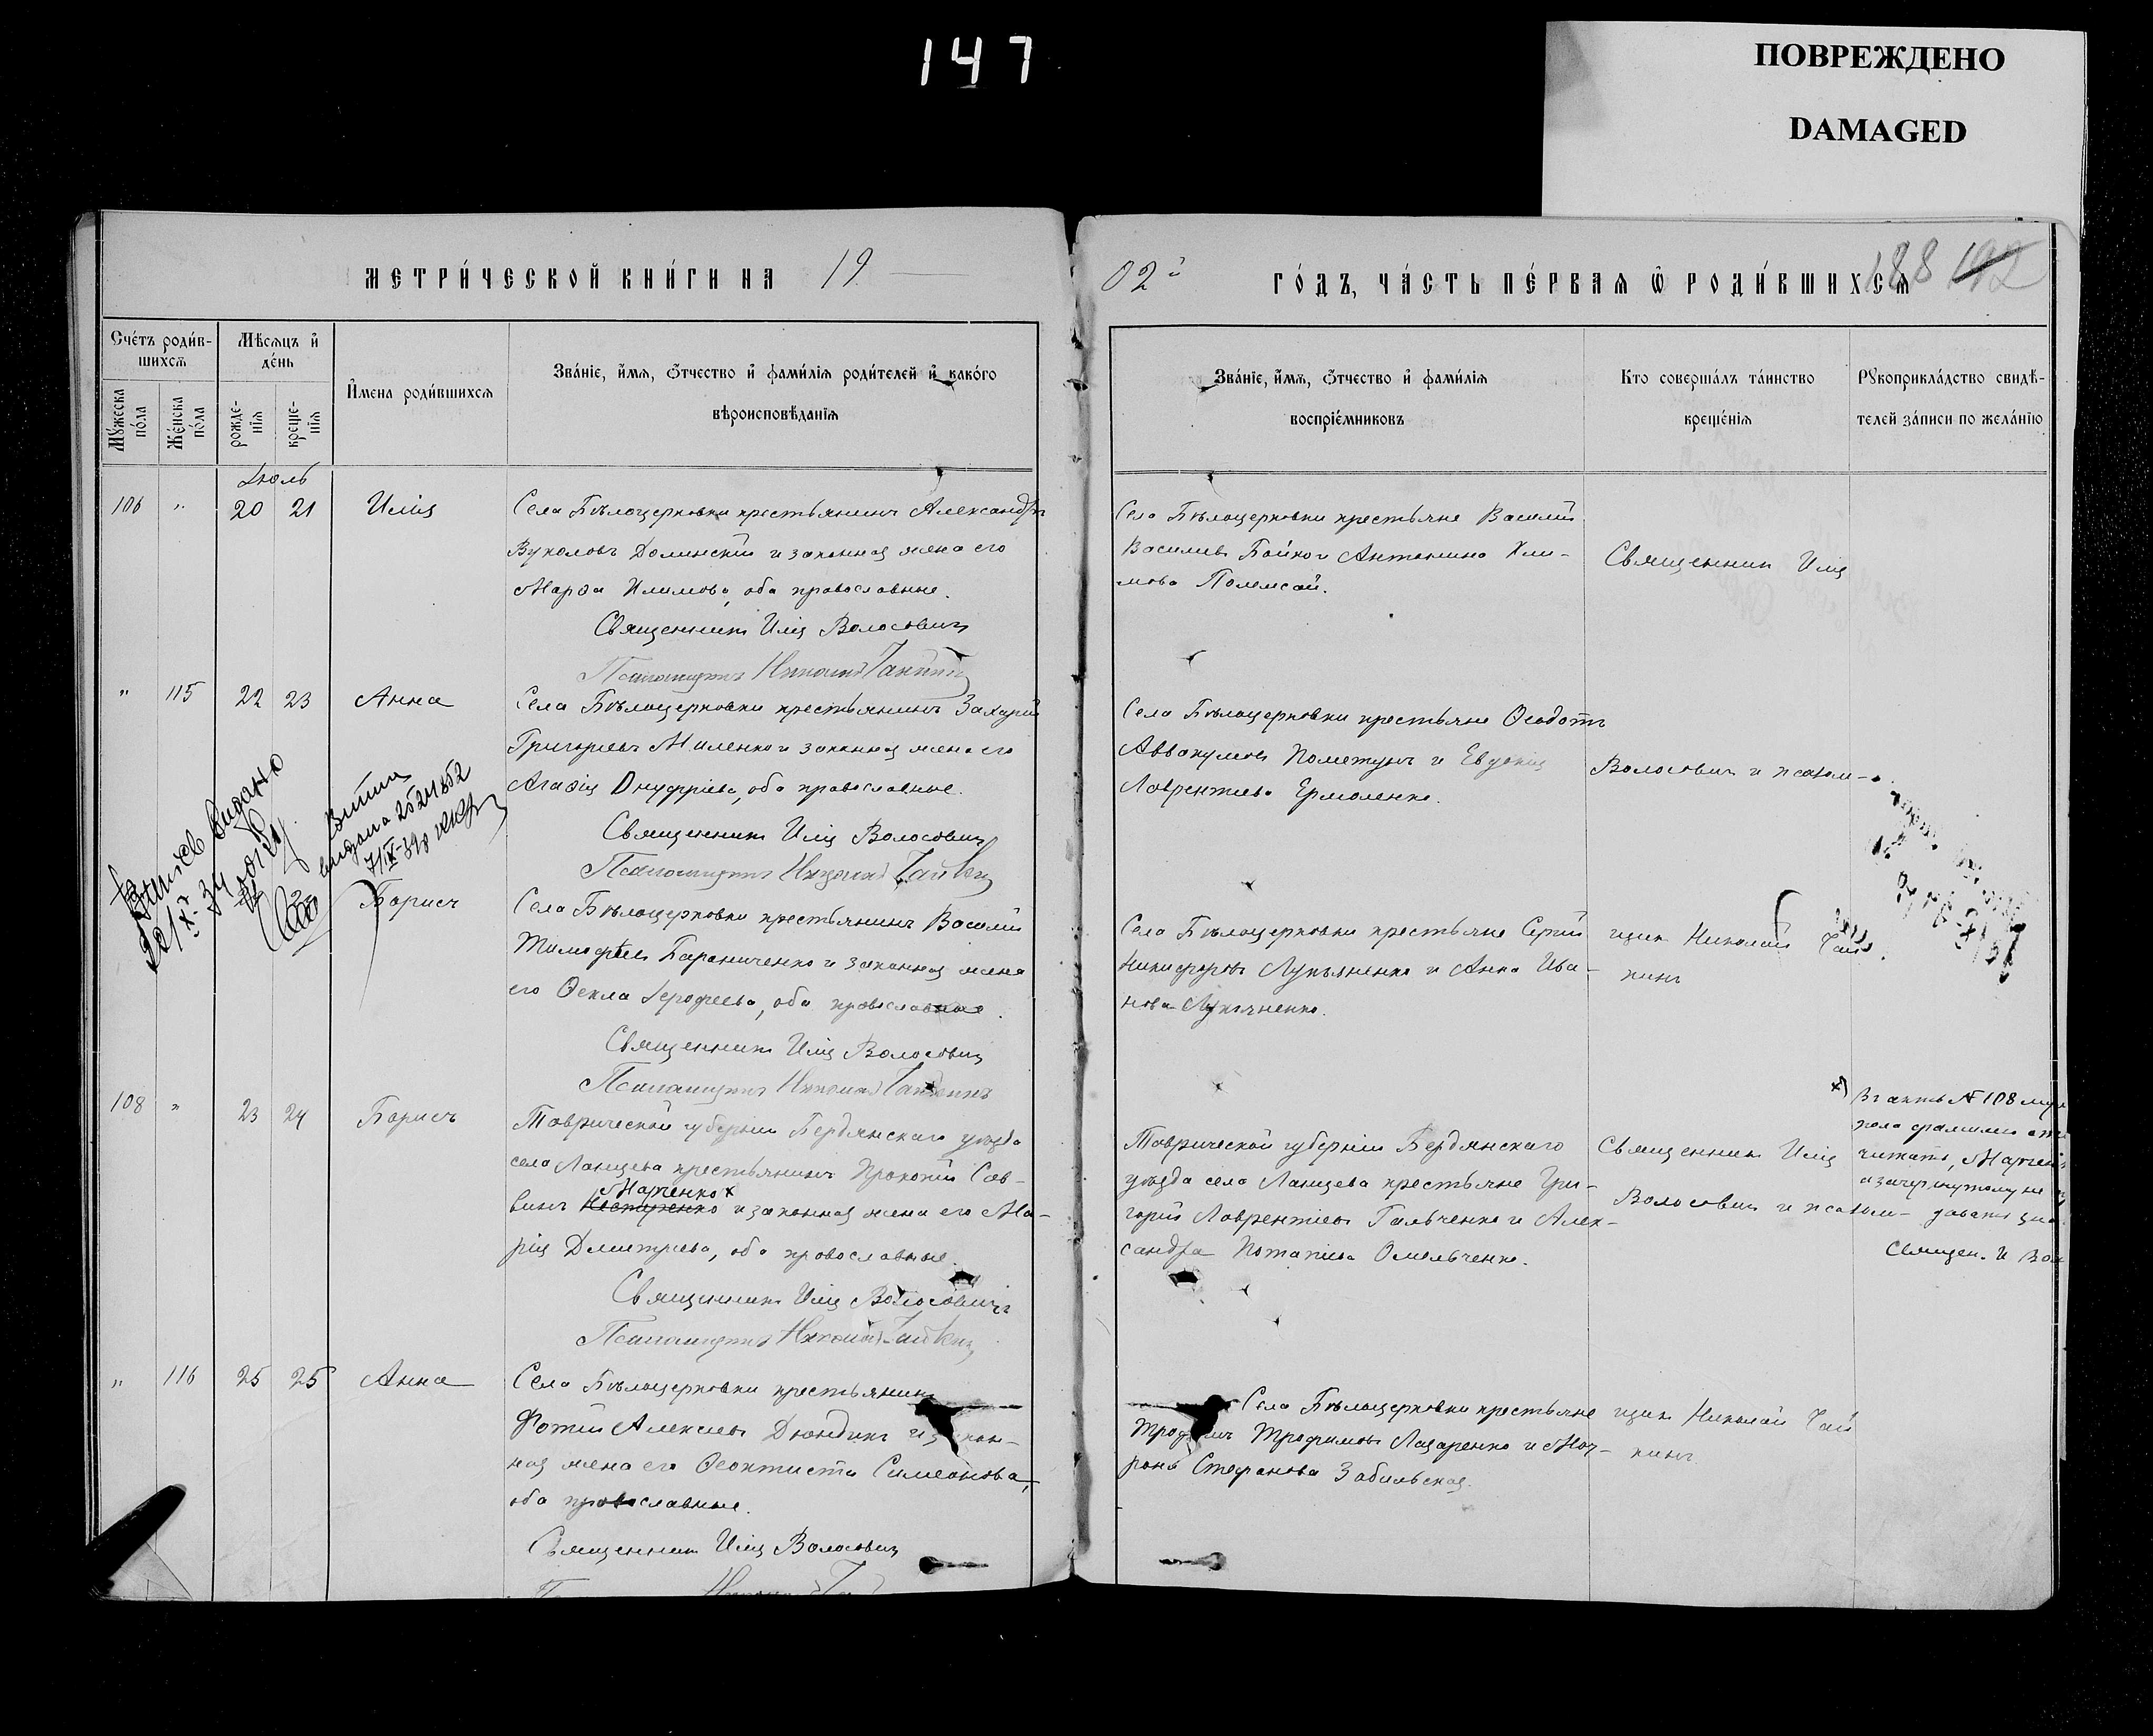 147
ПОВРЕЖДЕНО
DAMAGED
МЕТРИ́ЧЕСКОЙ КНИ́ГИ НА 19
02й ГО́ДЪ, ЧА́СТЬ ПЕ́РВАѦ Ѡ РОДИ́ВШИХСѦ
188 192
Сче́тъ роди́в-
шихсѧ
Мѣ́сѧцъ и҆
де́нь
Мꙋ́жеска
по́ла
Же́нска
по́ла
рожде-
нїѧ
креще-
нїѧ
И҆мена роди́вшихсѧ
Зва́нїе, и҆́мѧ, ѻ҆́тчество и҆ фами́лїѧ роди́телей и҆ како́го
вѣроисповѣ́данїѧ
Зва́нїе, и҆́мѧ, ѻ҆́тчество и҆ фами́лїѧ
воспрїе́мниковъ
Кто соверша́лъ та́инство
креще́нїѧ
Рꙋкоприкла́дство свидѣ́-
телей за́писи по жела́нїю
Іюль
106 " 20 21 Илія
Села Бѣлоцерковки крестьянинъ Александръ
Вуколовъ Долинскій и законная жена его
Марѳа Климова, оба православные.
Священникъ Илія Волосовичъ
Псаломщикъ Николай Чайкинъ
Села Бѣлоцерковки крестьяне Василій
Васильевъ Бойко и Антонина Кли-
мова
Священникъ Илія
" 115 22 23 Анна
Села Бѣлоцерковки крестьянинъ Захарій
Григорьевъ Миленко и законная жена его
Агаѳія Онуфріева, оба православные.
Священникъ Илія Волосовичъ
Псаломщикъ Николай Чайкинъ
Села Бѣлоцерковки крестьяне Ѳеодотъ
Аввакумовъ Пометунъ и Евдокія
Лаврентьева Ермоленко.
Волосовичъ и псалом-
видано
видана
Борисъ
Села Бѣлоцерковки крестьянинъ Василій
Тимофеевъ Бараниченко и законная жена
его Ѳекла Іерофеева, оба православные.
Священникъ Илія Волосовичъ
Псаломщикъ Николай Чайкинъ
Села Бѣлоцерковки крестьяне Сергій
Никифоровъ Лукьяненко и Анна Ива-
нова Лукьяненко.
щикъ Николай Чай
кинъ
108 " 23 24 Борисъ
Таврической губерніи Бердянскаго уѣзда
села Ланцева крестьянинъ Прокопій Сав-
Марченко х
винъ Нестеренко и законная жена его Ма-
рія Дмитріева, оба православные.
Священникъ Илія Волосовичъ
Псаломщикъ Николай Чайкинъ
Таврической губерніи Бердянскаго
уѣзда села Ланцева крестьяне Гри-
горій Лаврентіевъ Гальченко и Алек-
сандра Потапіева Омельченко.
Священникъ Илія
Волосовичъ и псалом-
х) Въ актѣ № 108 муж
пола фамилию
читать, Марченко
а зачеркнутому не
Священ. И Вол
" 116 25 25 Анна
Села Бѣлоцерковки крестьянинъ
Фотій Алексіевъ Дюндикъ и закон-
ная жена его Ѳеоктиста Симеонова,
оба православные.
Священникъ Илія Волосовичъ
Села Бѣлоцерковки крестьяне
Трофимъ Трофимовъ Лазаренко и Мат-
рона Стефанова Забильская.
щикъ Николай Чай
кинъ